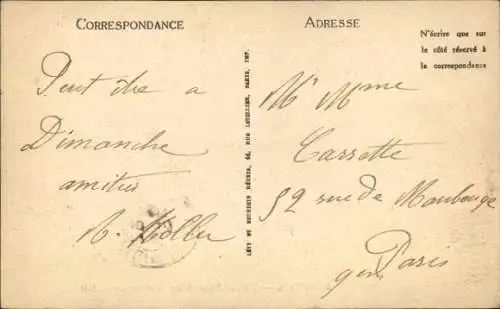 CORRESPONDANCE
ADRESSE
N'écrire que sur
le côté réservé à
la correspondance
Peut être a
Dimanche
amitiés
LÉVY ET NEURDEIN RÉUNIS, 44, RUE LETELLIER, PARIS, IMP.
Mr Mme
Cassette
52 rue de Maubeuge
Paris